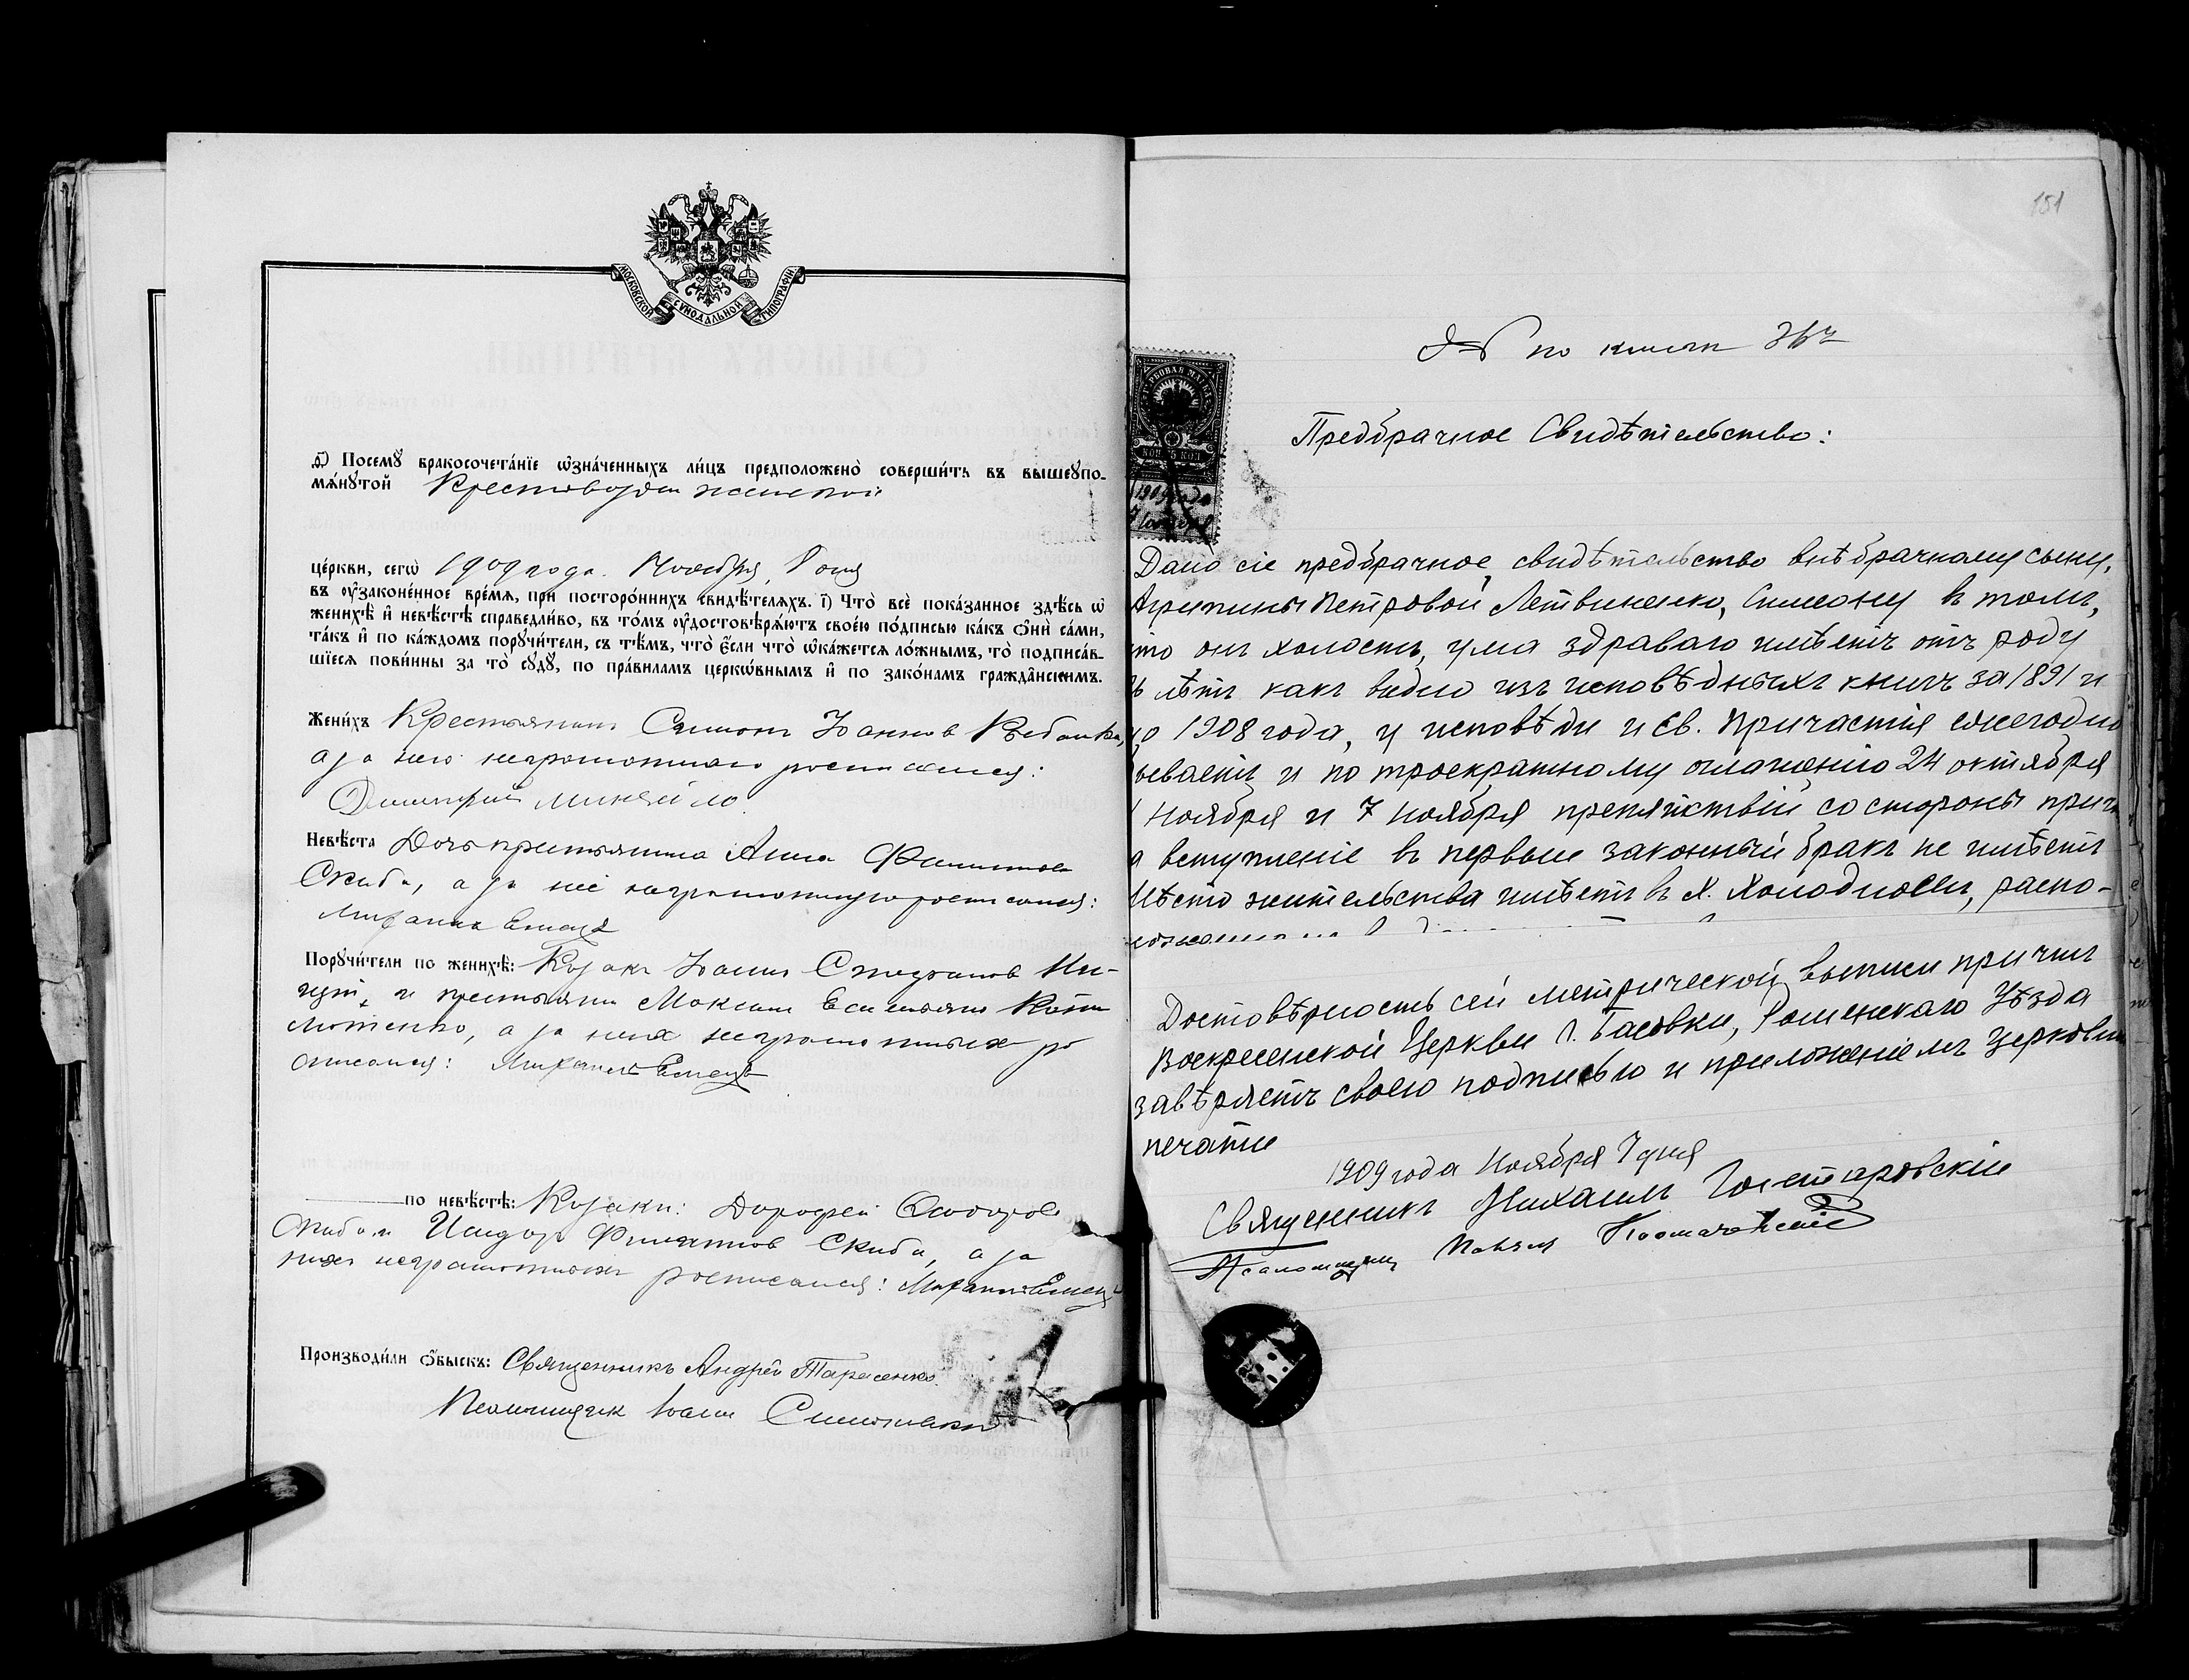 МОСКОВСКОЙ СУНОДАЛЬНОЙ ТИПОГРАФІИ
Посемꙋ̀ бракосочета́нїе ѡ҆зна́ченныхъ ли́цъ предположено̀ соверши́ть въ вышеꙋпо-
мѧ́нꙋтой
це́ркви, сегѡ̀ 1909 года. Ноября, 8 дня
въ ᲂу҆законе́нное вре́мѧ, при посторо́ннихъ свидѣ́телѧхъ. і҃) Что̀ всѐ пока́занное здѣ́сь ѡ҆
женихѣ̀ и҆ невѣ́стѣ справедли́во, въ то́мъ ᲂу҆достовѣрѧ́ютъ свое́ю по́дписью ка́къ ѻ҆нѝ са́ми,
та́къ и҆ по ка́ждомъ порꙋчи́тели, съ тѣ́мъ, что̀ є҆́сли что̀ ѡ҆ка́жетсѧ ло́жнымъ, то̀ подписа́в-
шїесѧ пови́нны за то̀ сꙋдꙋ̀, по пра́виламъ церко́внымъ и҆ по зако́намъ гражда́нскимъ.
Жени́хъ Крестьянинъ Симонъ Іоаннов
а за него неграмотнаго росписался:
Димитрій Миняйло
Невѣ́ста Дочь крестьянина Анна
Скиба, а за неё неграмотную росписался:
Михаилъ Емецъ
Порꙋчи́тели по женихѣ̀: Козакъ Іоаннъ Стефановъ
и крестьянинъ Максимъ
а за нихъ неграмотныхъ ро
списался: Михаилъ Емецъ
по невѣ́стѣ: Козаки: Дорофей
Скиба и Исидоръ Филиппов Скиба, а за
нихъ неграмотныхъ росписался: Михаилъ Емецъ
Производи́ли ѻ҆́быскъ: Священникъ Андрей Тарасенко
Псаломщикъ Іоаннъ
151
№ по книгѣ
ГЕРБОВАЯ МАРКА
75 КОП
1909 года
7 Ноября
Предбрачное Свидѣтельство:
Дано сіе предбрачное свидѣтельство внѣбрачному сыну,
Агрипины Петровой Летвиненко, Симеону въ томъ,
что онъ холостъ, ума здраваго имѣетъ отъ роду
лѣтъ какъ видно изъ исповѣдныхъ книгъ за 1891 и
до 1908 года, у исповѣди и св. Причастія ежегодно
бываетъ и по троекратному оглашенію 24 октября
1 Ноября и 7 Ноября препятствій со стороны прич
а вступленіе въ первый законный бракъ не имѣетъ
Мѣсто жительства имѣетъ въ х. Холодносги, распо-
Достовѣрность сей метрической выписи причтъ
Воскресенской Церкви с. Басовки, Роменскаго Уѣзда
завѣряетъ своею подписью и приложеніемъ церковн
печати
1909 года Ноября 7 дня
Священникъ Михаилъ
Псаломщикъ Павелъ